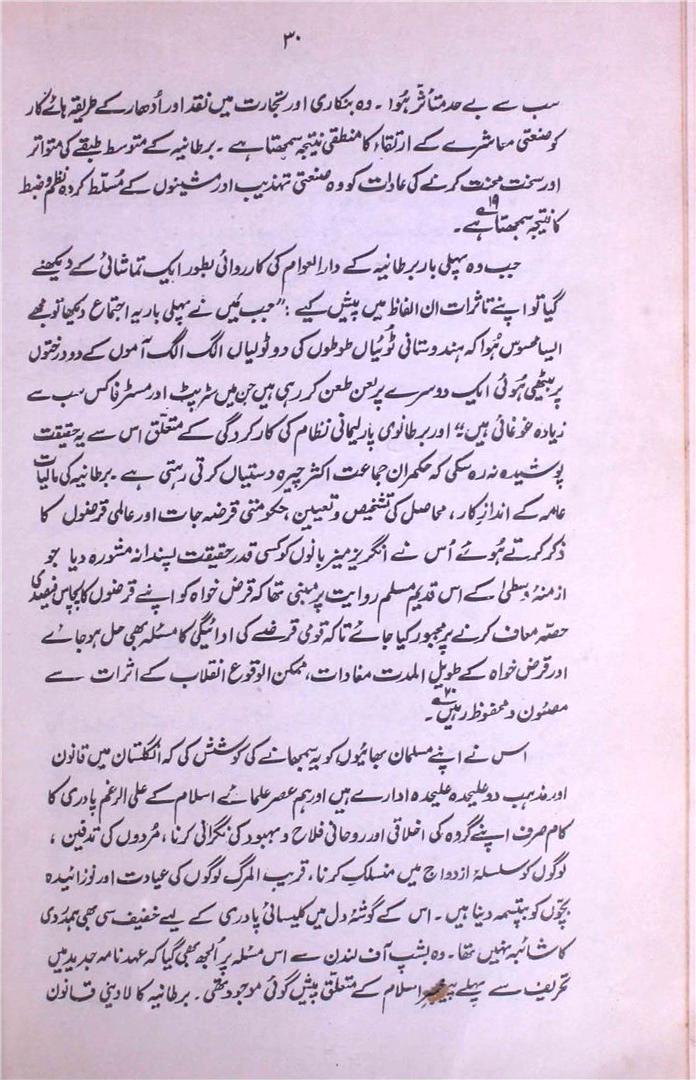 ۳۰
سب سے بے حد متأثر ہُوا ۔ وہ بنکاری اور تجارت میں نقد اور اُدھار کے طریقہ ہائے کار
کو صنعتی معاشرے کے ارتقاء کا منطقی نتیجہ سمجھتا ہے ۔ برطانیہ کے متوسط طبقے کی متواتر
اور سخت محنت کرنے کی عادات کو وہ صنعتی تہذیب اور مشینوں کے مُسلّط کردہ نظم و ضبط
کا نتیجہ سمجھتا ہے ۔۱۹
جب وہ پہلی بار برطانیہ کے دارالعوام کی کارروائی بطور ایک تماشائی کے دیکھنے
گیا تو اپنے تاثرات ان الفاظ میں پیش کیے : "جب مَیں نے پہلی بار یہ اجتماع دیکھا تو مجھے
ایسا محسوس ہُوا کہ ہندوستانی ٹوئیاں طوطوں کی دو ٹولیاں الگ الگ آموں کے دو درختوں
پر بیٹھی ہُوئی ایک دوسرے پر لعن طعن کر رہی ہیں جن میں سٹر پٹ اور مسٹر فاکس سب سے
زیادہ غوغائی ہیں" اور برطانوی پارلیمانی نظام کی کارکردگی کے متعلّق اس سے یہ حقیقت
پوشیدہ نہ رہ سکی کہ حکمران جماعت اکثر چیرہ دستیاں کرتی رہتی ہے ۔ برطانیہ کی مالیات
عامہ کے اندازِ کار ، محاصل کی تشخیص و تعیین ، حکومتی قرضہ جات اور عالمی قرضوں کا
ذکر کرتے ہُوئے اُس نے انگریز میزبانوں کو کسی قدر حقیقت پسندانہ مشورہ دیا جو
ازمنۂ وسطیٰ کے اس قدیم مسلم روایت پر مبنی تھا کہ قرض خواہ کو اپنے قرضوں کا پچاس فیصدی
حصّہ معاف کرنے پر مجبور کیا جائے تاکہ قومی قرضے کی ادائیگی کا مسئلہ بھی حل ہو جائے
اور قرض خواہ کے طویل المدت مفادات ، ممکن الوقوع انقلاب کے اثرات سے
مصئون و محفوظ رہیں ۔۲۰
اس نے اپنے مسلمان بھائیوں کو یہ سمجھانے کی کوشش کی کہ انگلستان میں قانون
اور مذہب دو علیحدہ علیحدہ ادارے ہیں اور ہم عصر علمائے اسلام کے علی الرغم پادری کا
کام صرف اپنے گروہ کی اخلاقی اور روحانی فلاح و بہبود کی نگرانی کرنا ، مُردوں کی تدفین ،
لوگوں کو سلسلۂ ازدواج میں منسلک کرنا ، قریب المرگ لوگوں کی عیادت اور نوزائیدہ
بچّوں کو بپتسمہ دینا ہیں ۔ اس کے گوشۂ دل میں کلیسائی پادری کے لیے خفیف سی بھی ہمدردی
کا شائبہ نہیں تھا ۔ وہ بشپ آف لندن سے اس مسئلہ پر اُلجھ بھی گیا کہ عہد نامہ جدید میں
تحریف سے پہلے پیغمبرِ اسلام کے متعلّق پیش گوئی موجود تھی ۔ برطانیہ کا لادینی قانون